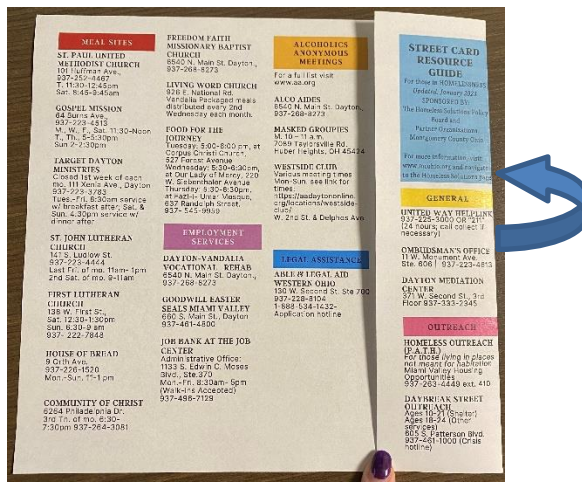 MEAL SITES
ST. PAUL UNITED
METHODIST CHURCH
101 Huffman Ave.,
937-252-4467
T. 11:30-12:45pm
Sat. 8:45-9:45am
GOSPEL MISSION
64 Burns Ave.,
937-223-4513
M., W., F., Sat. 11:30-Noon
T., Th., 5-5:30pm
Sun 2-2:30pm
TARGET DAYTON
MINISTRIES
Closed 1st week of each
mo. 111 Xenia Ave., Dayton
937-223-3783
Tues.-Fri. 8:30am service
w/ breakfast after; Sat. &
Sun. 4:30pm service w/
dinner after
ST. JOHN LUTHERAN
CHURCH
141 S. Ludlow St.
937-223-4444
Last Fri. of mo. 11am- 1pm
2nd Sat. of mo. 9-11am
FIRST LUTHERAN
CHURCH
138 W. First St.,
Sat. 12:30-1:30pm
Sun. 6:30-9 am
937- 222-7848
HOUSE OF BREAD
9 Orth Ave.
937-226-1520
Mon.-Sun. 11-1 pm
COMMUNITY OF CHRIST
6264 Philadelphia Dr.
3rd Th. of mo. 6:30-
7:30pm 937-264-3081
FREEDOM FAITH
MISSIONARY BAPTIST
CHURCH
6540 N. Main St. Dayton,
937-268-8273
LIVING WORD CHURCH
926 E. National Rd.
Vandalia Packaged meals
distributed every 2nd
Wednesday each month.
FOOD FOR THE
JOURNEY
Tuesday: 5:00-6:00 pm, at
Corpus Christi Church,
527 Forest Avenue
Wednesday: 5:30-6:30pm,
at Our Lady of Mercy, 220
W. Siebenthaler Avenue
Thursday: 5:30-6:30pm,
at Fazl-i- Umar Mosque,
637 Randolph Street.
937- 545-9959
EMPLOYMENT
SERVICES
DAYTON-VANDALIA
VOCATIONAL REHAB
6540 N. Main St. Dayton.,
937-268-8273
GOODWILL EASTER
SEALS MIAMI VALLEY
660 S. Main St., Dayton
937-461-4800
JOB BANK AT THE JOB
CENTER
Administrative Office:
1133 S. Edwin C. Moses
Blvd., Ste.370
Mon.-Fri. 8:30am- 5pm
(Walk-ins Accepted)
937-496-7129
ALCOHOLICS
ANONYMOUS
MEETINGS
For a full list visit
www.aa.org
ALCO AIDES
6540 N. Main St. Dayton,
937-268-8273
MASKED GROUPIES
M. 10 - 11 a.m.
7089 Taylorsville Rd.
Huber Heights, OH 45424
WESTSIDE CLUB
Various meeting times
Mon-Sun. see link for
times:
https://aadaytononline.
org/locations/westside-
club/
W. 2nd St. & Delphos Ave
LEGAL ASSISTANCE
ABLE & LEGAL AID
WESTERN OHIO
130 W. Second St. Ste 700
937-228-8104
1-888-534-1432-
Application hotline
STREET CARD
RESOURCE
GUIDE
For those in HOMELESSNESS
Updated, January 2023
SPONSORED BY:
The Homeless Solutions Policy
Board and
Partner Organizations
Montgomery County Ohio
For more information, visit
www.mcohio.org and navigate
to the Homeless Solutions page
GENERAL
UNITED WAY HELPLINK
937-225-3000 OR "211"
(24 hours; call collect if
necessary)
OMBUDSMAN'S OFFICE
11 W. Monument Ave.,
Ste. 606 | 937-223-4613
DAYTON MEDIATION
CENTER
371 W. Second St., 3rd
Floor 937-333-2345
OUTREACH
HOMELESS OUTREACH
(P.A.T.H.)
For those living in places
not meant for habitation
Miami Valley Housing
Opportunities
937-263-4449 ext. 410
DAYBREAK STREET
OUTREACH
Ages 10-21 (Shelter)
Ages 18-24 (Other
services)
605 S. Patterson Blvd.
937-461-1000 (Crisis
hotline)